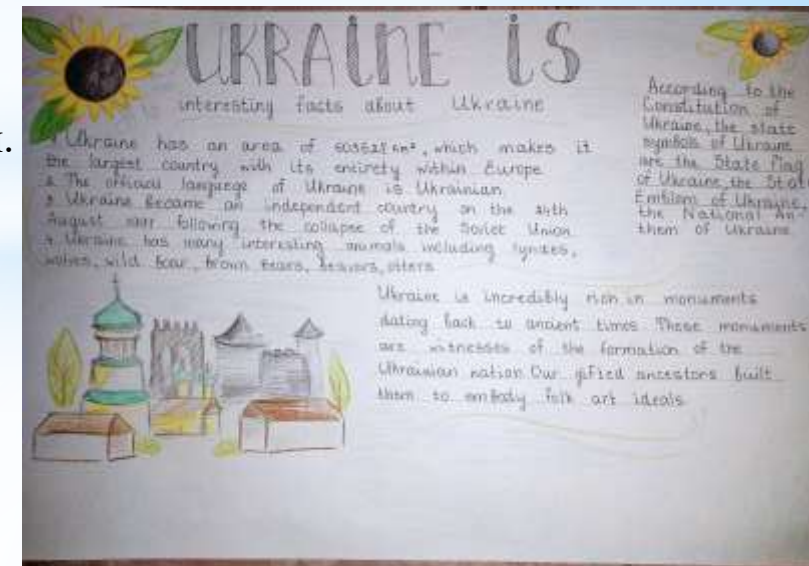 UKRAINE IS
interesting facts about Ukraine
1 Ukraine has an area of 603628 km², which makes it
the largest country with its entirety within Europe
2 The official language of Ukraine is Ukrainian
3 Ukraine became an independent country on the 24th
August following the collapse of the Soviet Union
4 Ukraine has many interesting animals including lynxes,
wolves, wild boar, brown bears, beavers, otters
According to the
Constitution of
Ukraine, the state
symbols of Ukraine
are the State Flag
of Ukraine, the Stat
Emblem of Ukraine,
the National An-
them of Ukraine
Ukraine is incredibly rich in monuments
dating back to ancient times These monuments
are witnesses of the formation of the
Ukrainian nation. Our gifted ancestors built
them to embody folk art ideals